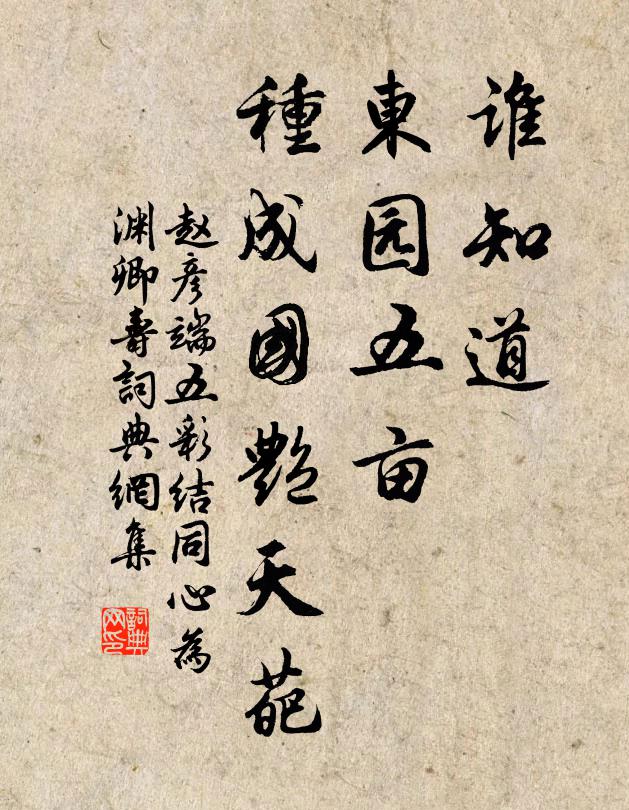 谁知道
東园五亩
種成國艷天葩
赵彦端五彩结同心為
渊卿壽詞典網集
詞典网印